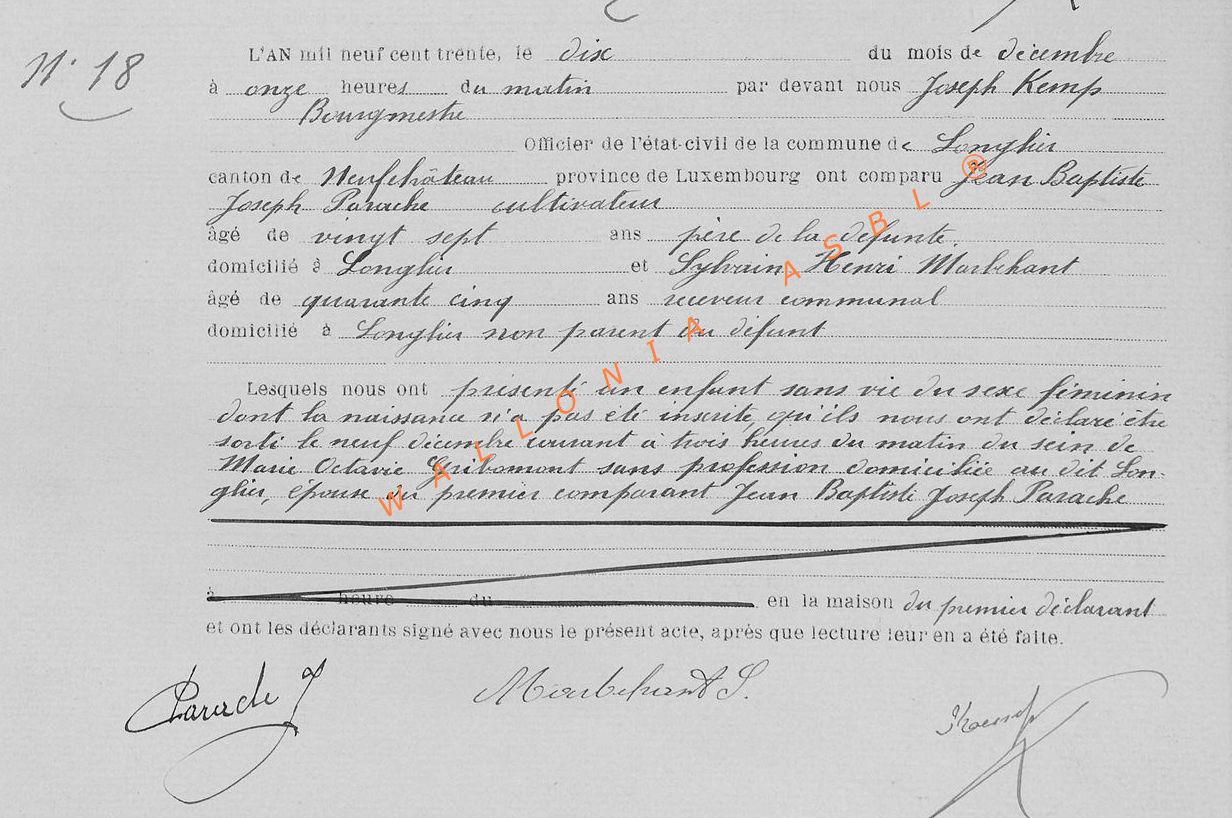 N° 18
L'AN mil neuf cent trente, le dix du mois de décembre
à onze heures du matin par devant nous Joseph Kemp
Bourgmestre
Officier de l'état-civil de la commune de Longlier
canton de Neufchâteau province de Luxembourg ont comparu Jean Baptiste
Joseph Parache cultivateur
âgé de vingt sept ans père de la défunte.
domicilié à Longlier et Sylvain Henri Marbehant
âgé de quarante cinq ans receveur communal
domicilié à Longlier non parent du défunt
Lesquels nous ont présenté un enfant sans vie du sexe féminin
dont la naissance n'a pas été inscrite, qu'ils nous ont déclaré être
sorti le neuf décembre courant à trois heures du matin du sein de
Marie Octavie Gribomont sans profession domiciliée au dit Lon-
glier, épouse du premier comparant Jean Baptiste Joseph Parache
à heure du en la maison du premier déclarant
et ont les déclarants signé avec nous le présent acte, après que lecture leur en a été faite.
Parache J Marbehant S. Kemp
WALLONIA ASBL ®